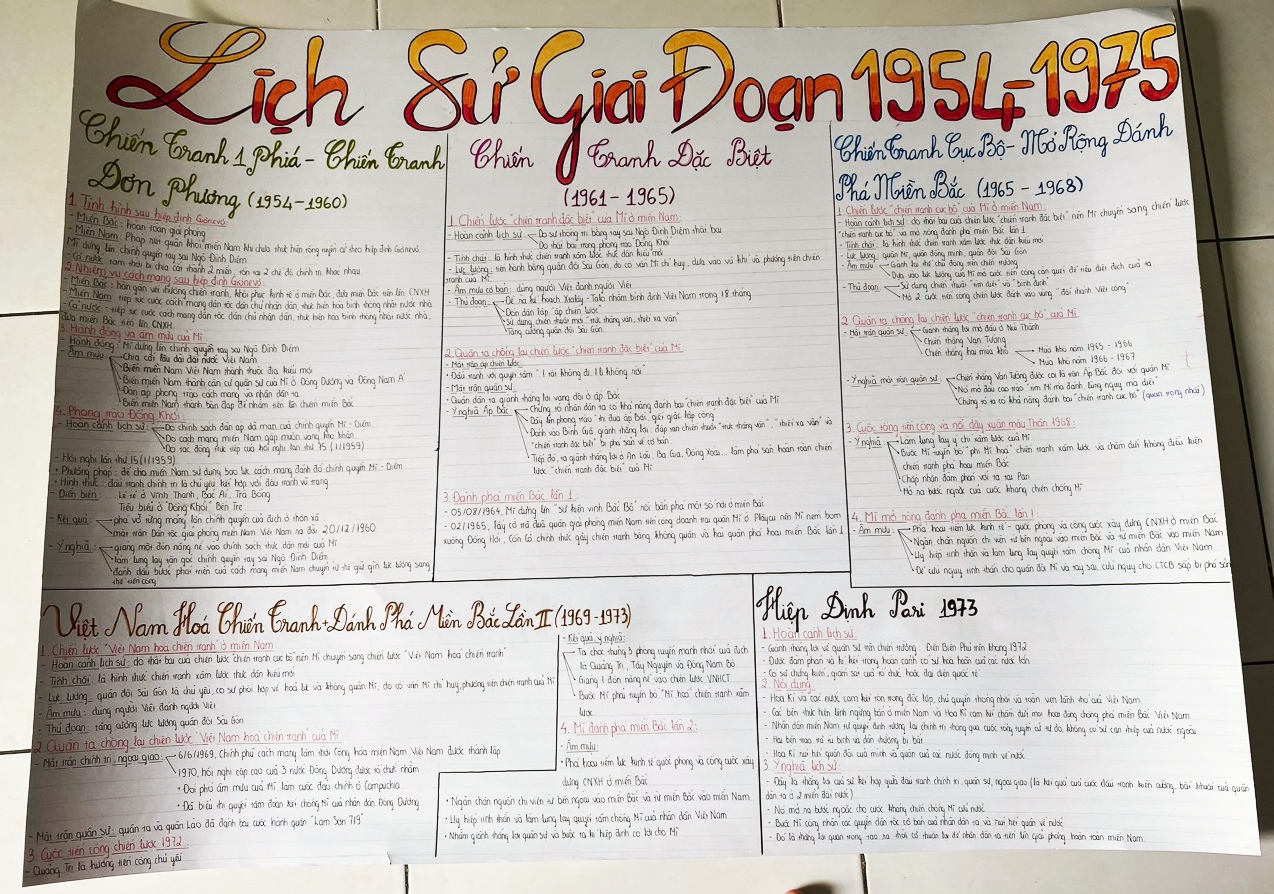 Lịch Sử Giai Đoạn 1954-1975
Chiến Tranh 1 Phiá - Chiến Tranh
Đơn Phương (1954-1960)
1. Tình hình sau hiệp định Giơnevơ:
- Miền Bắc: hoàn toàn giải phóng
- Miền Nam: Pháp rút quân khỏi miền Nam khi chưa thực hiện tổng tuyển cử theo hiệp định Giơnevơ.
Mĩ dựng lên chính quyền tay sai Ngô Đình Diệm
- Cả nước tạm thời bị chia cắt thành 2 miền, tồn tại 2 chế độ chính trị khác nhau
2. Nhiệm vụ cách mạng sau hiệp định Giơnevơ:
- Miền Bắc: hàn gắn vết thương chiến tranh, khôi phục kinh tế ở miền Bắc, đưa miền Bắc tiến lên CNXH
- Miền Nam: tiếp tục cuộc cách mạng dân tộc dân chủ nhân dân, thực hiện hòa bình thống nhất nước nhà
- Cả nước: tiếp tục cuộc cách mạng dân tộc dân chủ nhân dân, thực hiện hoà bình thống nhất nước nhà,
đưa miền Bắc tiến lên CNXH.
3. Hành động và âm mưu của Mĩ
- Hành động: Mĩ dựng lên chính quyền tay sai Ngô Đình Diệm
- Âm mưu
Chia cắt lâu dài đất nước Việt Nam
Biến miền Nam Việt Nam thành thuộc địa kiểu mới
Biến miền Nam thành căn cứ quân sự của Mĩ ở Đông Dương và Đông Nam Á
Đàn áp phong trào cách mạng và nhân dân ta
Biến miền Nam thành bàn đạp để nhằm tiến lên chiếm miền Bắc
4. Phong trào Đồng Khởi:
- Hoàn cảnh lịch sử:
Do chính sách đàn áp dã man của chính quyền Mĩ - Diệm
Do cách mạng miền Nam gặp muôn vàng khó khăn
Do tác động trực tiếp của hội nghị lần thứ 15 (1/1959)
- Hội nghị lần thứ 15 (1/1959)
+ Phương pháp: để cho miền Nam sử dụng bạo lực cách mạng đánh đổ chính quyền Mĩ - Diệm.
+ Hình thức: đấu tranh chính trị là chủ yếu kết hợp với đấu tranh vũ trang
- Diễn biến: Lẻ tẻ ở Vĩnh Thạnh, Bác Ái, Trà Bồng
Tiêu biểu ở "Đồng Khởi" Bến Tre
- Kết quả:
phá vỡ từng mảng lớn chính quyền của địch ở thôn xã
mặt trận Dân tộc giải phóng miền Nam Việt Nam ra đời 20/12/1960
- Ý nghĩa:
giáng một đòn nặng nề vào chính sách thực dân mới của Mĩ
làm lung lay tận gốc chính quyền tay sai Ngô Đình Diệm
đánh dấu bước phát triển của cách mạng miền Nam chuyển từ thế giữ gìn lực lượng sang
thế tiến công.
Chiến Tranh Đặc Biệt
(1961 - 1965)
1. Chiến lược "chiến tranh đặc biệt" của Mĩ ở miền Nam:
- Hoàn cảnh lịch sử
Do sự thống trị bằng tay sai Ngô Đình Diệm thất bại
Do thất bại trong phong trào Đồng Khởi
- Tính chất: là hình thức chiến tranh xâm lược thực dân kiểu mới
- Lực lượng: tiến hành bằng quân đội Sài Gòn, do cố vấn Mĩ chỉ huy, dựa vào vũ khí và phương tiện chiến
tranh của Mĩ
- Âm mưu cơ bản: dùng người Việt đánh người Việt
- Thủ đoạn:
Đề ra kế hoạch Xtalây - Talo nhằm bình định Việt Nam trong 18 tháng
Dồn dân lập "ấp chiến lược"
Sử dụng chiến thuật mới "trực thăng vận, thiết xa vận"
Tăng cường quân đội Sài Gòn
2. Quân ta chống lại chiến lược "chiến tranh đặc biệt" của Mĩ:
- Mặt trận ấp chiến lược:
+ Đấu tranh với quyết tâm "1 tất không đi, 1 li không rời"
- Mặt trận quân sự:
+ Quân dân ta giành thắng lợi vang dội ở ấp Bắc
- Ý nghĩa Ấp Bắc
Chứng tỏ nhân dân ta có khả năng đánh bại "chiến tranh đặc biệt" của Mĩ
Dấy lên phong trào "thi đua Ấp Bắc, giết giặc lập công"
Đánh vào Bình Giã giành thắng lợi: đập tan chiến thuật "trực thăng vận", "thiết xa vận" và
"chiến tranh đặc biệt" bị phá sản về cơ bản
Tiếp đó, ta giành thắng lợi ở An Lão, Ba Gia, Đồng Xoài... làm phá sản hoàn toàn chiến
lược "chiến tranh đặc biệt" của Mĩ
3. Đánh phá miền Bắc lần 1:
- 05/08/1964, Mĩ dựng lên "sự kiện vịnh Bắc Bộ" rồi bắn phá một số nơi ở miền Bắc
- 02/1965, lấy cớ trả đũa quân giải phóng miền Nam tiến công doanh trại quân Mĩ ở Plâycu nên Mĩ ném bom
xuống Đồng Hới, Cồn Cỏ chính thức gây chiến tranh bằng không quân và hải quân phá hoại miền Bắc lần 1
Chiến Tranh Cục Bộ - Mở Rộng Đánh
Phá Miền Bắc (1965 - 1968)
1. Chiến lược "chiến tranh cục bộ" của Mĩ ở miền Nam:
- Hoàn cảnh lịch sử: do thất bại của chiến lược "chiến tranh đặc biệt" nên Mĩ chuyển sang chiến lược
"chiến tranh cục bộ" và mở rộng đánh miền Bắc lần 1
- Tính chất: là hình thức chiến tranh xâm lược thực dân kiểu mới
- Lực lượng: quân Mĩ, quân đồng minh, quân đội Sài Gòn
- Âm mưu
Giành lại thế chủ động trên chiến trường
Dựa vào lực lượng của Mĩ mở cuộc tiến công càn quét để tiêu diệt địch của ta
- Thủ đoạn:
Sử dụng chiến thuật "tìm diệt" và "bình định"
Mở 2 cuộc tiến công chiến lược đánh vào vùng "đất thánh Việt cộng"
2. Quân ta chống lại chiến lược "chiến tranh cục bộ" của Mĩ:
- Mặt trận quân sự:
Giành thắng lợi mở đầu ở Núi Thành
Chiến thắng Vạn Tường
Chiến thắng hai mùa khô
Mùa khô năm 1965 - 1966
Mùa khô năm 1966 - 1967
- Ý nghĩa mặt trận quân sự:
Chiến thắng Vạn Tường được coi là trận Ấp Bắc đối với quân Mĩ
Nó mở đầu cao trào "tìm Mĩ mà đánh, lùng ngụy mà diệt"
Chứng tỏ ta có khả năng đánh bại "chiến tranh cục bộ" (quan trọng nhất)
3. Cuộc tổng tiến công và nổi dậy xuân Mậu Thân 1968:
- Ý nghĩa:
Làm lung lay ý chí xâm lược của Mĩ
Buộc Mĩ tuyên bố "phi Mĩ hoá" chiến tranh xâm lược và chấm dứt không điều kiện
chiến tranh phá hoại miền Bắc
Chấp nhận đàm phán với ta tại Pari
Mở ra bước ngoặt của cuộc kháng chiến chống Mĩ
4. Mĩ mở rộng đánh phá miền Bắc lần 1:
- Âm mưu:
Phá hoại tiềm lực kinh tế - quốc phòng và công cuộc xây dựng CNXH ở miền Bắc
Ngăn chặn nguồn chi viện từ bên ngoài vào miền Bắc và từ miền Bắc vào miền Nam
Uy hiếp tinh thần và làm lung lay quyết tâm chống Mĩ của nhân dân Việt Nam
Để cứu nguy tinh thần cho quân đội Mĩ và tay sai, cứu nguy cho CTCB sắp bị phá sản
Việt Nam Hoá Chiến Tranh + Đánh Phá Miền Bắc Lần II (1969 - 1973)
1. Chiến lược "Việt Nam hoá chiến tranh" ở miền Nam
- Hoàn cảnh lịch sử: do thất bại của chiến lược "chiến tranh cục bộ" nên Mĩ chuyển sang chiến lược "Việt Nam hoá chiến tranh"
- Tính chất: là hình thức chiến tranh xâm lược thực dân kiểu mới
- Lực lượng: quân đội Sài Gòn là chủ yếu, có sự phối hợp về hoả lực và không quân Mĩ, do cố vấn Mĩ chỉ huy, phương tiện chiến tranh của Mĩ
- Âm mưu: dùng người Việt đánh người Việt
- Thủ đoạn: tăng cường lực lượng quân đội Sài Gòn
2. Quân ta chống lại chiến lược "Việt Nam hoá chiến tranh" của Mĩ:
- Mặt trận chính trị, ngoại giao:
6/6/1969, Chính phủ cách mạng lâm thời Cộng hòa miền Nam Việt Nam được thành lập
1970, hội nghị cấp cao của 3 nước Đông Dương được tổ chức nhằm
+ Đối phó âm mưu của Mĩ làm cuộc đảo chính ở Campuchia
+ Đã biểu thị quyết tâm đoàn kết chống Mĩ của nhân dân Đông Dương
- Mặt trận quân sự: quân ta và quân Lào đã đánh bại cuộc hành quân "Lam Sơn 719"
3. Cuộc tiến công chiến lược 1972:
- Quảng Trị là hướng tiến công chủ yếu
- Kết quả, ý nghĩa:
Ta chọc thủng 3 phòng tuyến mạnh nhất của địch
là Quảng Trị, Tây Nguyên và Đông Nam Bộ
Giáng 1 đòn nặng nề vào chiến lược VNHCT
Buộc Mĩ phải tuyên bố "Mĩ hoá" chiến tranh xâm
lược
4. Mĩ đánh phá miền Bắc lần 2:
- Âm mưu:
+ Phá hoại tiềm lực kinh tế quốc phòng và công cuộc xây
dựng CNXH ở miền Bắc
+ Ngăn chặn nguồn chi viện từ bên ngoài vào miền Bắc và từ miền Bắc vào miền Nam.
+ Uy hiếp tinh thần và làm lung lay quyết tâm chống Mĩ của nhân dân Việt Nam
+ Nhằm giành thắng lợi quân sự và buộc ta kí hiệp định có lợi cho Mĩ
Hiệp Định Pari 1973
1. Hoàn cảnh lịch sử:
- Giành thắng lợi về quân sự trên chiến trường: Điện Biên Phủ trên không 1972
- Được đàm phán và kí kết trong hoàn cảnh có sự hoà hoãn của các nước lớn
- Có sự chứng kiến, giám sát của tổ chức hoặc đại diện quốc tế
2. Nội dung
- Hoa Kì và các nước cam kết tôn trọng độc lập, chủ quyền thống nhất và toàn vẹn lãnh thổ của Việt Nam.
- Các bên thực hiện lệnh ngừng bắn ở miền Nam và Hoa Kì cam kết chấm dứt mọi hoạt động chống phá miền Bắc Việt Nam
- Nhân dân miền Nam tự quyết định tương lai chính trị thông qua cuộc tổng tuyển cử tự do, không có sự can thiệp của nước ngoài
- Hai bên trao trả tù binh và dân thường bị bắt
- Hoa Kì rút hết quân đội của mình và quân của các nước đồng minh về nước
3. Ý nghĩa lịch sử:
- Đây là thắng lợi của sự kết hợp giữa đấu tranh chính trị, quân sự, ngoại giao (là kết quả của cuộc đấu tranh kiên cường, bất khuất của quân
dân ta ở 2 miền đất nước)
- Nó mở ra bước ngoặc cho cuộc kháng chiến chống Mĩ cứu nước
- Buộc Mĩ công nhận các quyền dân tộc cơ bản của nhân dân ta và rút hết quân về nước
- Đó là thắng lợi quan trọng tạo ra thời cơ thuận lợi để nhân dân ta tiến lên giải phóng hoàn toàn miền Nam.